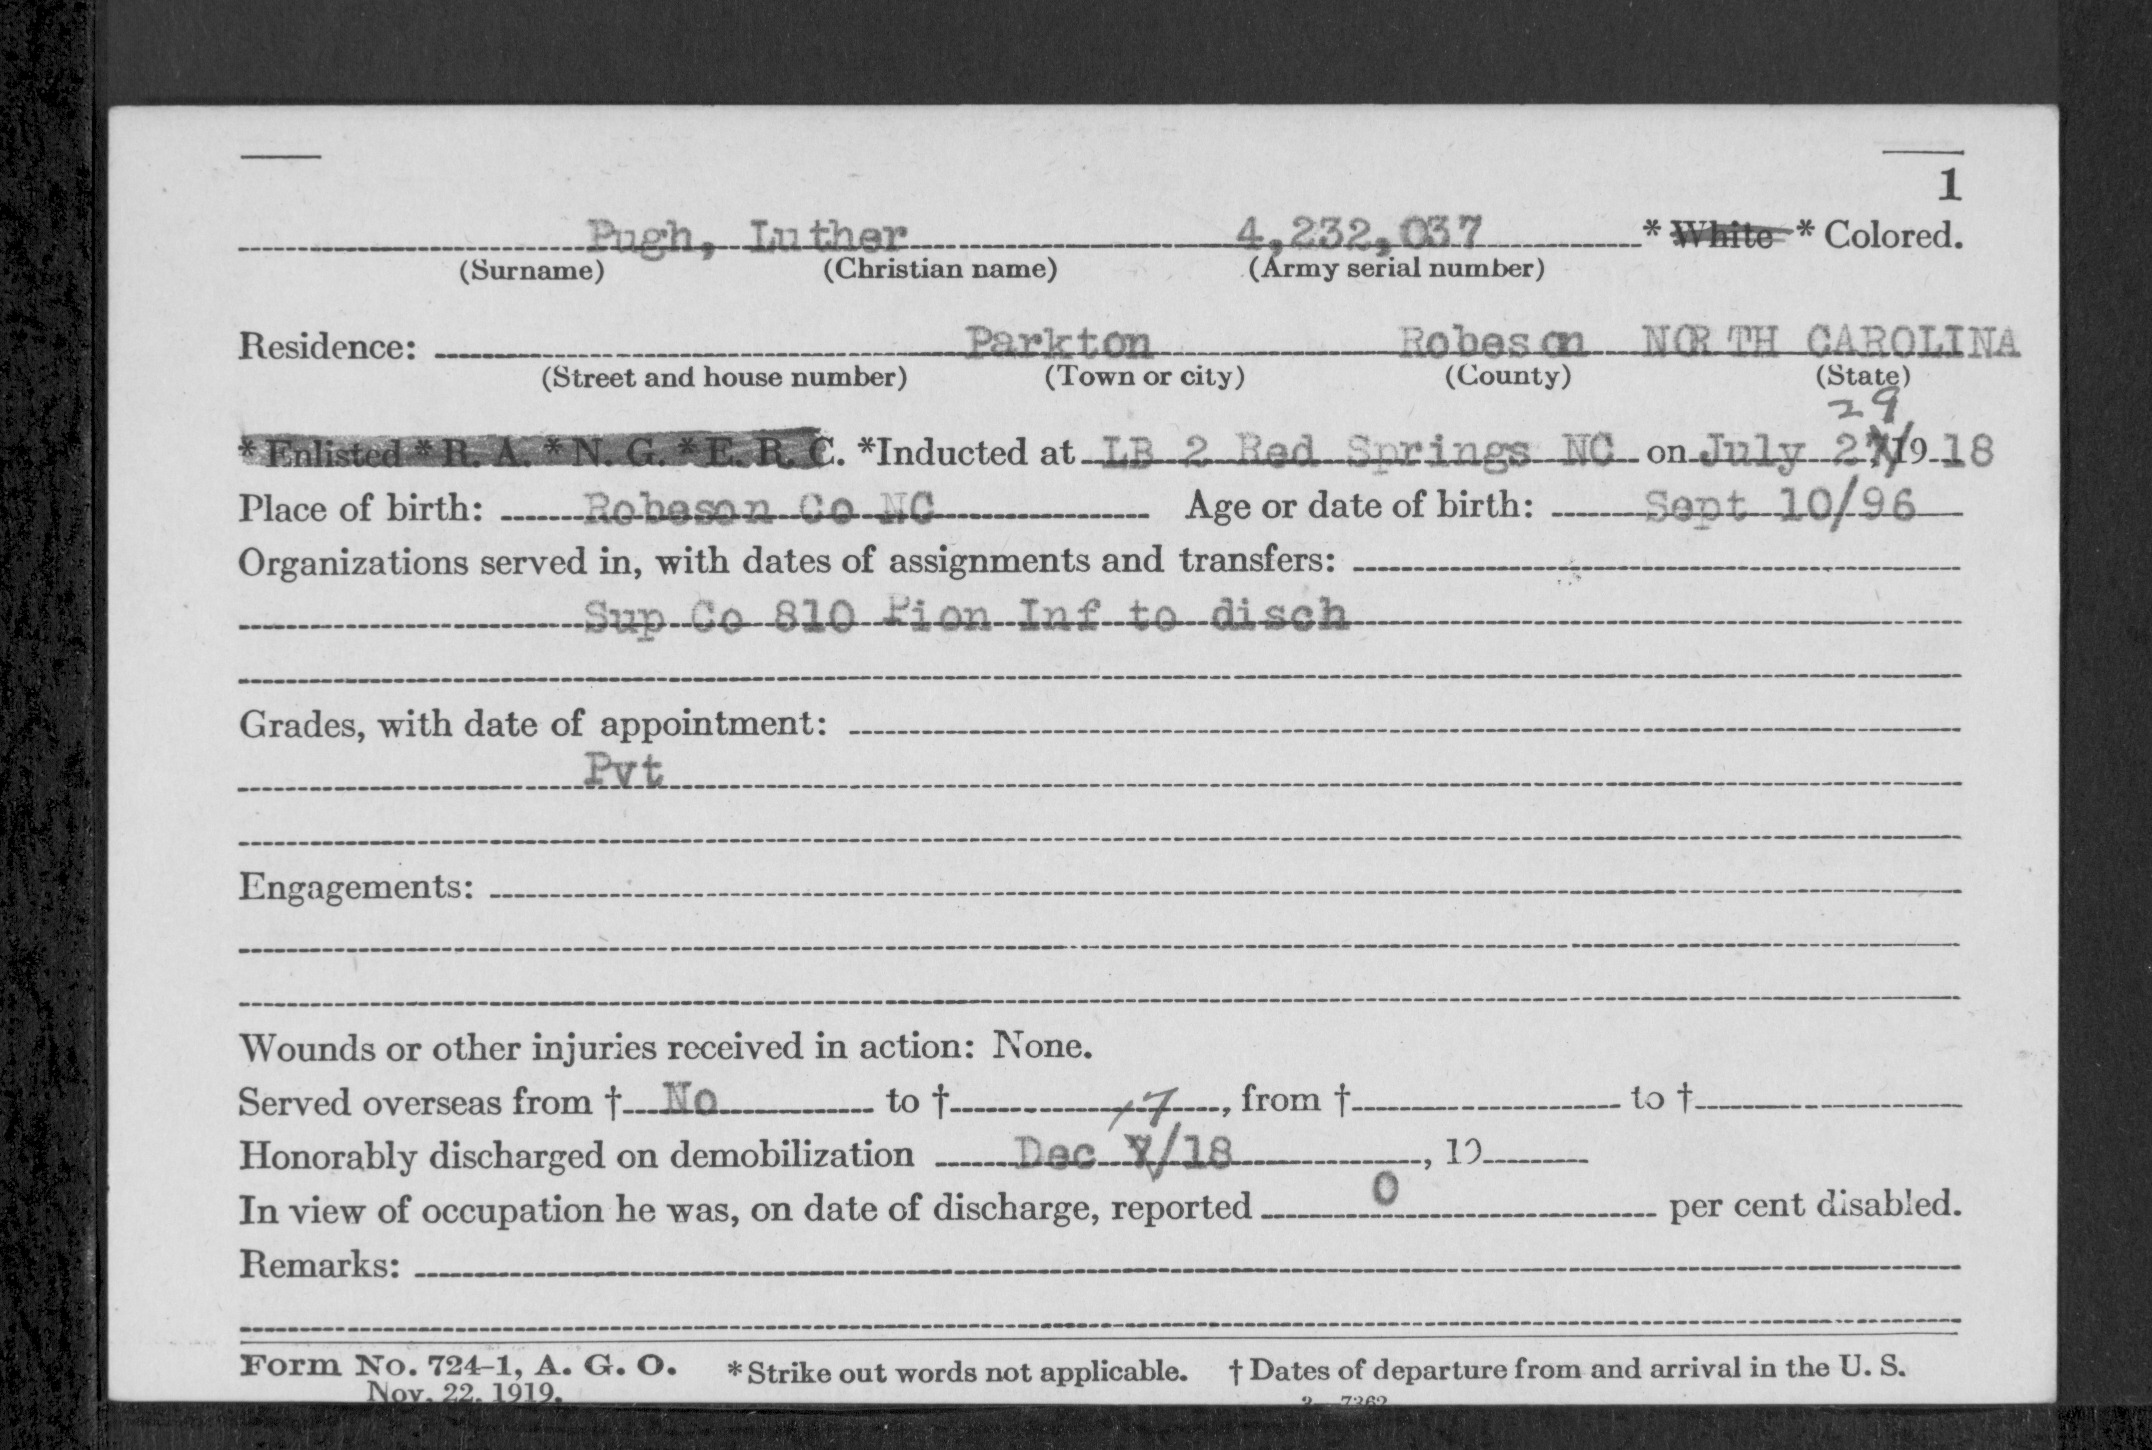 1
Pugh, Luther 4,232,037 * White * Colored.
(Surname) (Christian name) (Army serial number)
Residence: Parkton Robeson NORTH CAROLINA
(Street and house number) (Town or city) (County) (State)
29
* Enlisted * R. A. * N. G. * E. R. C. *Inducted at LB 2 Red Springs NC on July 27/19 18
Place of birth: Robeson Co NC Age or date of birth: Sept 10/96
Organizations served in, with dates of assignments and transfers:
Sup Co 810 Pion Inf to disch
Grades, with date of appointment:
Pvt
Engagements:
Wounds or other injuries received in action: None.
Served overseas from † No to † , from † to †
17
Honorably discharged on demobilization Dec /18 , 19
In view of occupation he was, on date of discharge, reported 0 per cent disabled.
Remarks:
Form No. 724-1, A. G. O. * Strike out words not applicable. † Dates of departure from and arrival in the U. S.
Nov. 22, 1919. 3—7362